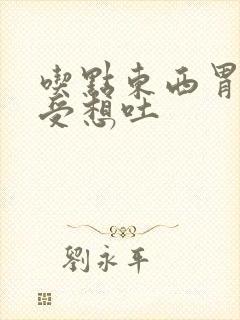 喫點東西胃
受想吐
劉永平